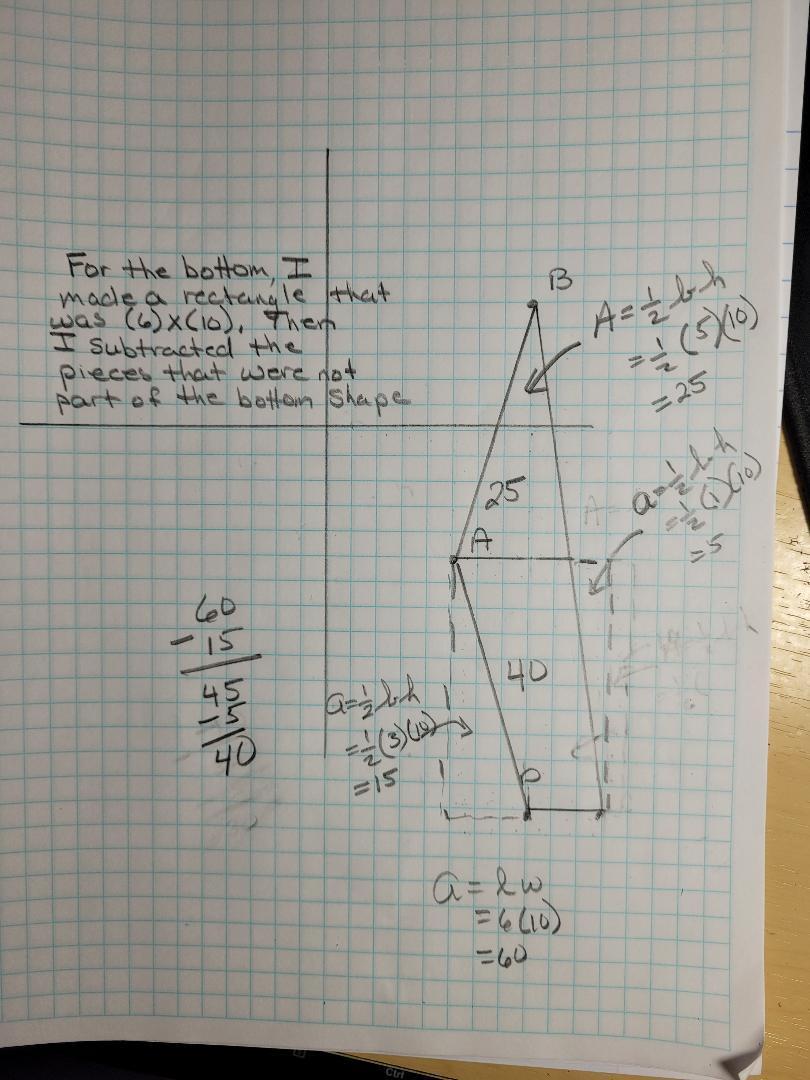 For the bottom, I
made a rectangle that
was (6)x(10). Then
I subtracted the
pieces that were not
part of the bottom shape
B
A=½bh
=½(5)(10)
=25
25
A
A=
a=½bh
=½(1)(10)
=5
60
-15
45
-5
40
40
a=½bh
=½(3)(10)
=15
a=lw
=6(10)
=60
Ctrl